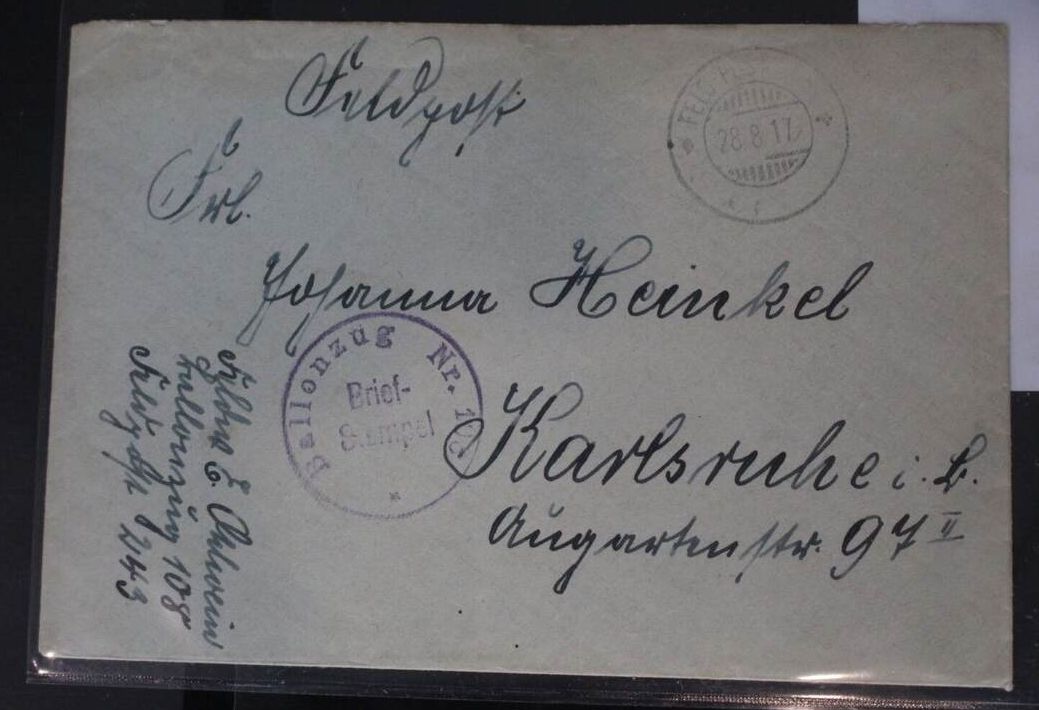 Feldpost
FELDPOST
28.8.17
Frl.
Johanna Heinkel
Ballonzug Nr. 108
Brief-
Stempel
Karlsruhe i. B.
Augartenstr. 97 II
E.
Ballonzug 108
Feldpost 243